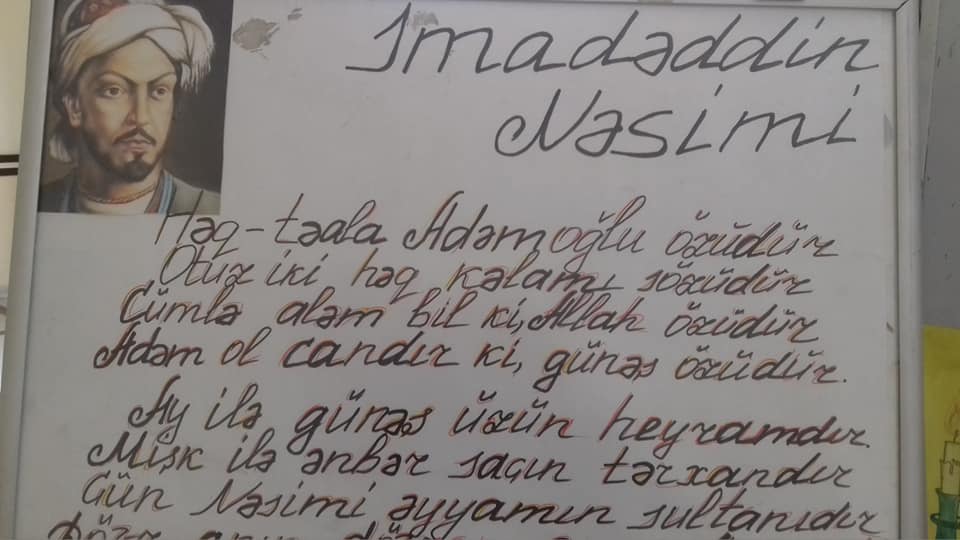 Imadəddin
Nəsimi
Həq-təala Adəmoğlu özüdür
Otuz iki həq kəlamı sözüdür
Cümlə aləm bil ki, Allah özüdür
Adəm ol candır ki, günəş özüdür.
Ay ilə günəş üzün heyramdır.
Mişk ilə ənbər saçın tərxandır
Gün Nəsimi əyyamın sultanıdır